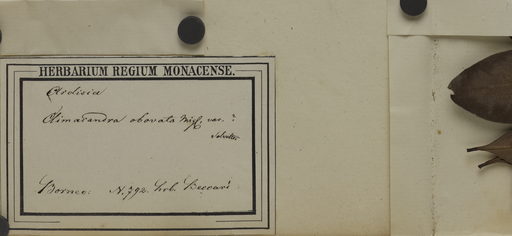 HERBARIUM REGIUM MONACENSE.
Ardisia
Climacandra obovata Miq. var. ?
Borneo: N. 792. hb. Beccari